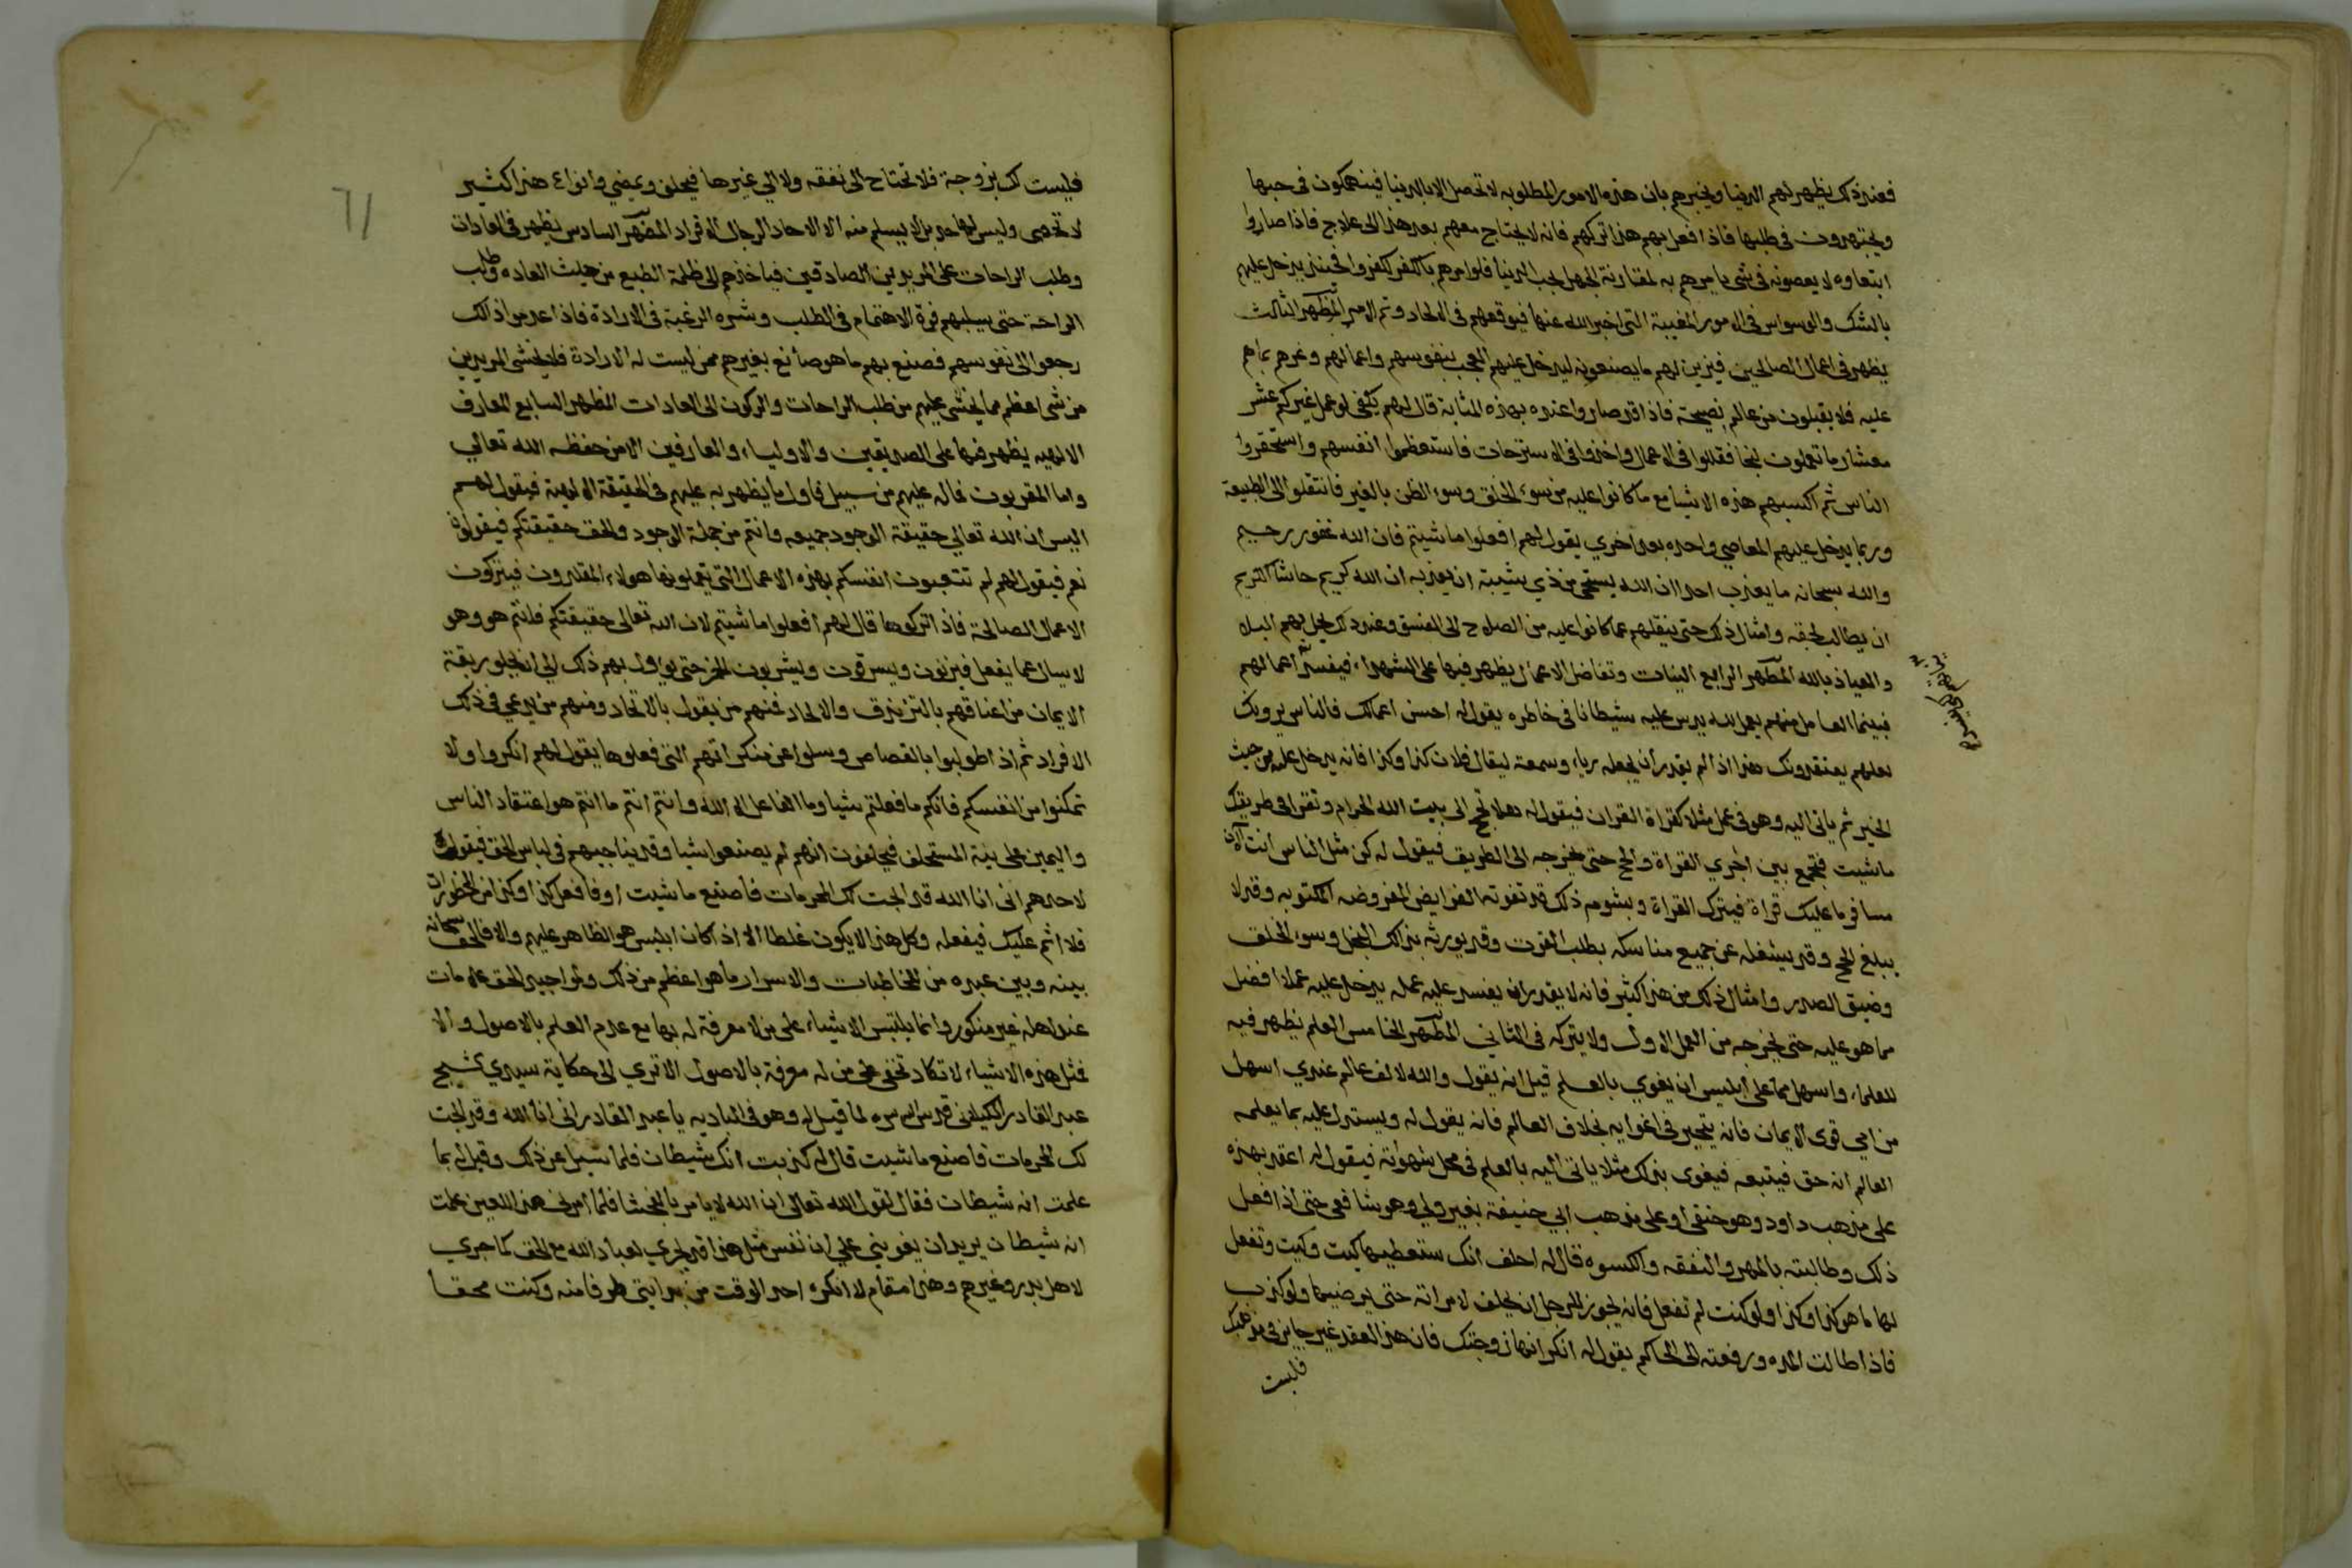 فعند ذلك يظهر لهم الدنيا ويخبرهم بان هذه الامور المطلوبه لا تحصل الا بالدنيا فينهمكون في حبها
ويجتهدون في طلبها فاذا فعل بهم هذا تركهم فانه لا يحتاج معهم بعد هذا الى علاج فاذا صاروا
ابتعاوه لا يعصونه في شي يامرهم به لمقارنة الجهل لحب الدنيا فلو امرهم بالكفر لكفروا فحينئذ يدخل عليهم
بالشك والوسواس في الامور المغيبة التي اخبر الله عنها فيوقعهم في الالحاد وتم الامر المظهر الثالث
يظهر في اعمال الصالحين فيزين لهم ما يصنعونه ليدخل عليهم العجب بنفوسهم واعمالهم وغرهم بما هم
عليه فلا يقبلون من عالم نصيحة فاذا قد صاروا عنده بهذه المثابة قال لهم يكفي لو عمل غيركم عشر
معشار ما تعملون لنجا فقللوا في الاعمال واخذوا في الاستراحات فاستعظموا انفسهم واستحقروا
الناس ثم اكسبهم هذه الاشيا مع ما كانوا عليه من سوء الخلق وسوء الظن بالغير فانتقلوا الى الطبيعة
وربما يدخل عليهم المعاصي واحده بعد اخري يقول لهم افعلوا ما شيتم فان الله غفور رحيم
والله سبحانه ما يعذب احدا ان الله يستحي من ذي شيبة ان يعذبه ان الله كريم حاشا الكريم
ان يطالب بحقه وامثال ذلك حتى ينقلهم عما كانوا عليه من الصلاح الى الفسق وعند ذلك يحل بهم البلا
والعياذ بالله المظهر الرابع النيات وتفاضل الاعمال يظهر فيها على الشهداء فيفسد اعمالهم
فبينما العامل منهم يعمل لله يدس عليه شيطانا في خاطره يقول له احسن اعمالك فالناس يرونك
لعلهم يعتقدونك هذا اذا لم يقدر ان يجعله رياء وسمعة ليقال فلان كذا وكذا فانه يدخل عليه من حيث
الخير ثم ياتي اليه وهو في عمل مثلا كقراة القران فيقول له هلا تحج الى بيت الله الحرام وتقرا في طريقك
ما شيت فتجمع بين اجري القراة والحج حتى يخرجه الى الطريق فيقول له كن مثل الناس انت الان
مسافر ما عليك قراة فيترك القراة وبشومه ذلك قد تفوته الفرايض المفروضه المكتوبه وقد لا
يبلغ الحج وقد يشغله عن جميع مناسكه بطلب القوت وقد يورثه بذلك البخل وسوء الخلق
وضيق الصدر وامثال ذلك من هذا كثير فانه لا يقدر ان يفسد عليه عمله يدخل عليه عملا افضل
مما هو عليه حتى يخرجه من العمل الاول ولا يتركه في الثاني المظهر الخامس العلم يظهر فيه
للعلماء واسهل ما على ابليس ان يغوي بالعلم قيل انه يقول والله لالف عالم عندي اسهل
من امي قوي الايمان فانه يتحير في اغوايه بخلاف العالم فانه يقول له ويستدل عليه بما يعلمه
العالم انه حق فيتبعه فيغوى بذلك مثلا ياتي اليه بالعلم في محل شهوته فيقول له اعقد بهذه
على مذهب داود وهو حنفي او على مذهب ابي حنيفة بغير ولي وهو شافعي حتى اذا فعل
ذلك وطالبته بالمهر والنفقه والكسوه قال له احلف انك ستعطيها كيت وكيت وتفعل
لها ما هو كذا وكذا ولو كنت لم تفعل فانه يجوز للرجل ان يحلف لامراته حتى يرضيها ولو كذب
فاذا طالت المده ورفعته الى الحاكم يقول له انكر انها زوجتك فان هذا العقد غير جايز في مذهبك
فليست
فليست لك بزوجة فلا تحتاج الى نفقه ولا الي غيرها فيحلف ويمضي وانواع هذا كثير
لا تحصى وليس لها حد بل لا يسلم منه الا الاحاد الرجال الافراد المظهر السادس يظهر في العادات
وطلب الراحات على المريدين الصادقين فياخذهم الى ظلمة الطبع من حيث العاده وطلب
الراحة حتى يسلبهم قوة الاهتمام في الطلب وشده الرغبة في الارادة فاذا عدموا ذالك
رجعوا الى نفوسهم فصنع بهم ما هو صانع بغيرهم ممن ليست له الارادة فلا يخشى المريدين
من شي اعظم مما يخشى عليهم من طلب الراحات والركون الى العادات المظهر السابع المعارف
الالهيه يظهر فيها على الصديقين والاولياء والعارفين الا من حفظه الله تعالي
واما المقربون فما له عليهم من سبيل فاول ما يظهر به عليهم في الحقيقة الالهية فيقول لهم
اليس ان الله تعالي حقيقة الوجود جميعه وانتم من جملة الوجود والحق حقيقتكم فيقولون
نعم فيقول لهم لم تتعبون انفسكم بهذه الاعمال التي يعملونها هولاء المقلدون فيتركون
الاعمال الصالحة فاذا تركوها قال لهم افعلوا ما شيتم لان الله تعالى حقيقتكم فانتم هو وهو
لا يسال عما يفعل فيزنون ويسرقون ويشربون الخمر حتى يوول بهم ذلك الي ان يخلعوا ربقة
الايمان من اعناقهم بالتزندق والالحاد فمنهم من يقول بالاتحاد ومنهم من يدعي في ذلك
الافراد ثم اذا طولبوا بالقصاص وسلوا عن منكراتهم التي فعلوها يقول لهم انكروا ولا
تمكنوا من انفسكم فانكم ما فعلتم شيا وما الفاعل الا الله وانتم انتم ما انتم هو اعتقاد الناس
واليمين على نية المستحلف فيحلفون انهم لم يصنعوا شيا وقد يناجيهم في لباس الحق فيقول
لاحدهم اني انا الله قد ابحت لك المحرمات فاصنع ما شيت او فافعل كذا وكذا من المحظورات
فلا اثم عليك فيفعله وكل هذا لا يكون غلطا الا اذا كان ابليس هو الظاهر عليهم والا فالحق سبحانه
بينه وبين عبده من المخاطبات والاسرار ما هو اعظم من ذلك ولمواجيد الحق علامات
عند اهله غير منكور وانما يلتبس الاشياء على من لا معرفة له بها مع عدم العلم بالاصول والا
فمثل هذه الاشياء لا تكاد تخفى على من له معرفة بالاصول الا ترى الى حكاية سيدي شيخ
عبد القادر الكيلاني قدس الله سره لما قيل له وهو في الباديه يا عبد القادر اني انا الله وقد ابحت
لك المحرمات فاصنع ما شيت قال له كذبت انك شيطان فلما سيل عن ذلك وقيل له بما
علمت انه شيطان فقال لقول الله تعالى ان الله لا يامر بالفحشا فلما امرني هذا اللعين علمت
انه شيطان يريد ان يغويني علي ان نفس مثل هذا قد يجري لعباد الله مع الحق كما جري
لاهل بدر وغيرهم وهذا مقام لا انكره احد الوقت من بدايتي طرفا منه وكنت محقا